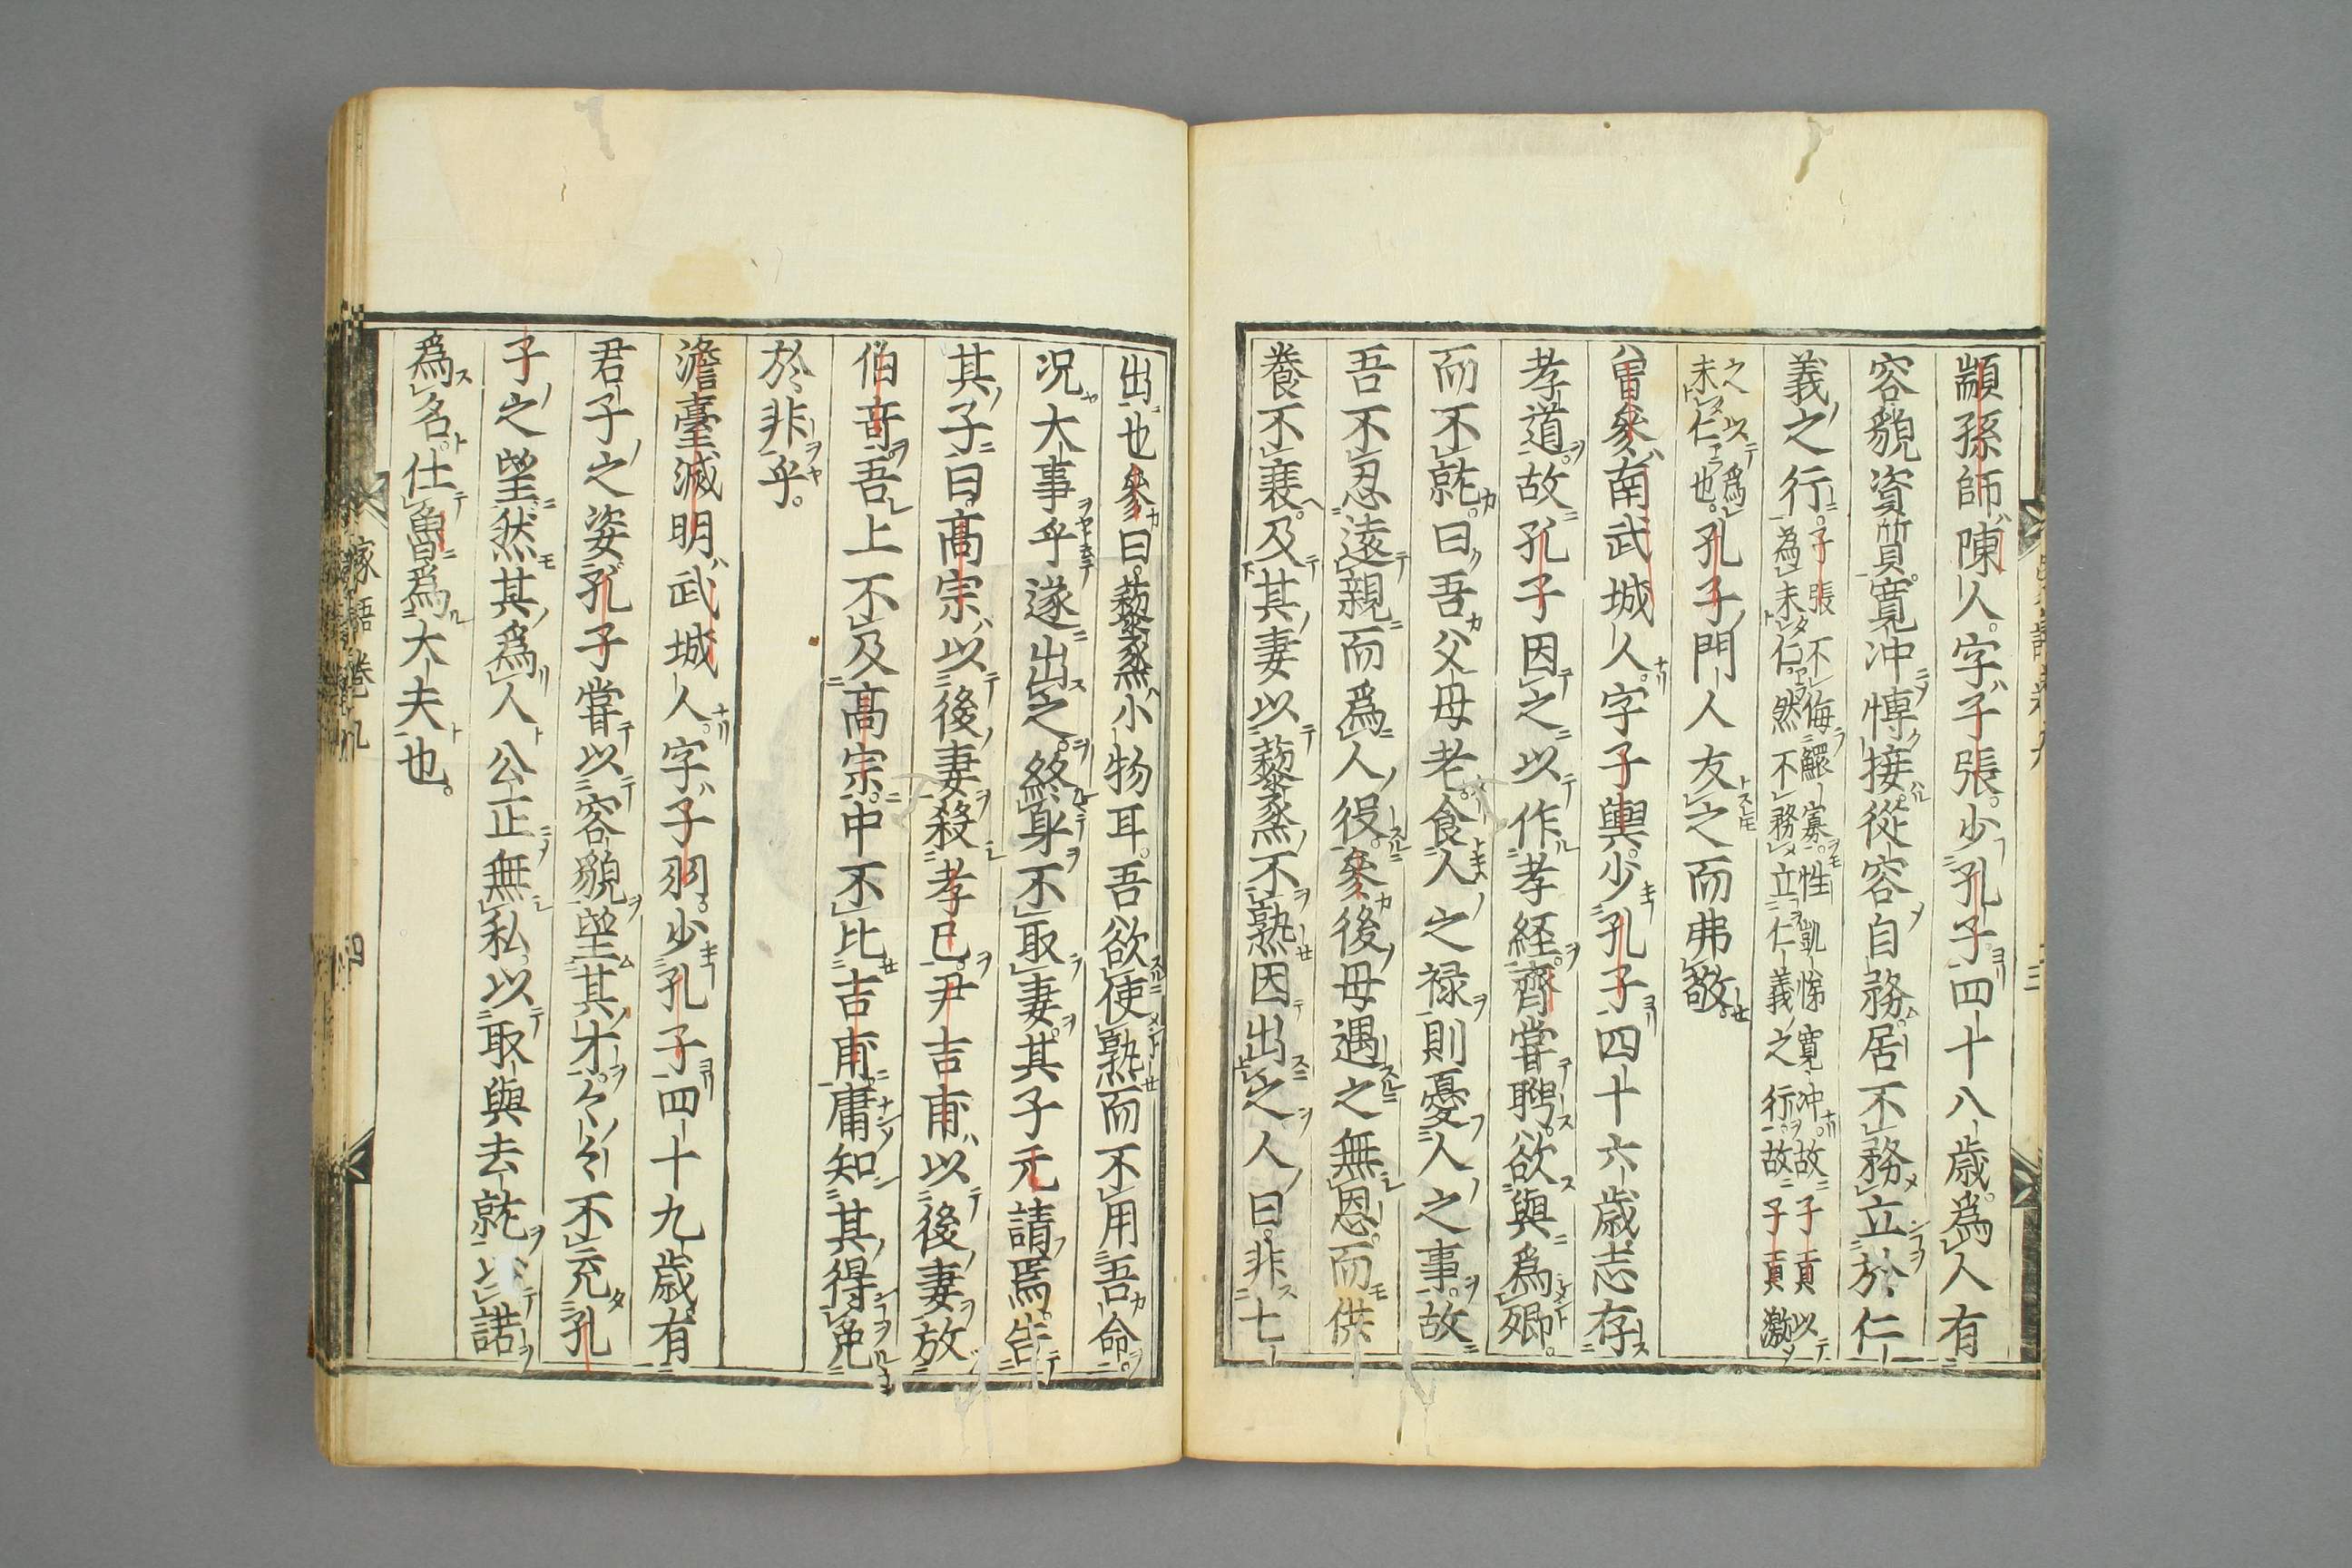 顓孫師陳人字子張少孔子四十八歲爲人有
容貌資質寬冲愽接從容自務居不務立於仁
義之行子張不侮鰥寡性凱悌寬冲故子貢以
爲未仁然不務立仁義之行故子貢激
之以爲
未仁也孔子門人友之而弗敬
曽參南武城人字子輿少孔子四十六歲志存
孝道故孔子因之以作孝経齊嘗聘欲與爲卿
而不就曰吾父母老食人之禄則憂人之事故
吾不忍遠親而爲人役參後母遇之無恩而供
養不衰及其妻以藜蒸不熟因出之人曰非七
出也參曰藜蒸小物耳吾欲使熟而不用吾命
况大事乎遂出之終身不取妻其子元請焉告
其子曰高宗以後妻殺孝己尹吉甫以後妻放
伯竒吾上不及高宗中不比吉甫庸知其得免
於非乎
澹臺滅明武城人字子羽少孔子四十九歲有
君子之姿孔子嘗以容貌望其才々々不充孔
子之望然其爲人公正無私以取與去就以諾
爲名仕魯爲大夫也
家語卷九